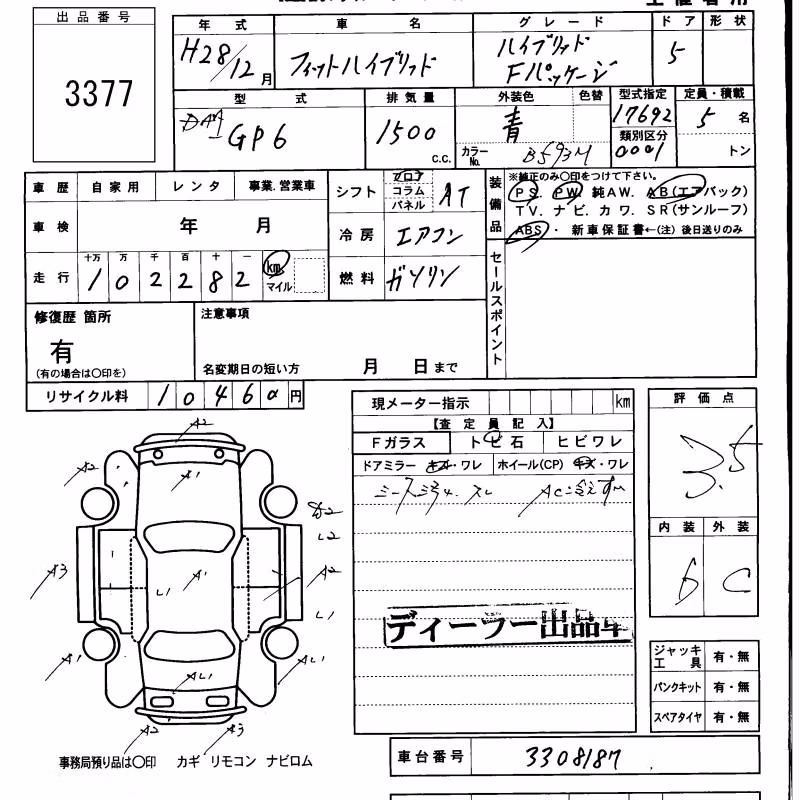 出品番号
3377
年式 車名 グレード ドア 形状
H28/12月 フィットハイブリッド ハイブリッド Fパッケージ 5
型式 排気量 外装色 色替 型式指定 定員・積載
DAA-GP6 1500 c.c. 青 17692 5 名
カラーNo. B593M 類別区分 0001 トン
車歴 自家用 レンタ 事業.営業車 シフト フロア コラム パネル AT
装備品 ※純正のみ○印をつけて下さい。
PS. PW. 純AW. AB(エアバック)
TV. ナビ. カワ. SR(サンルーフ)
ABS ・ 新車保証書←(注) 後日送りのみ
車検 年 月 冷房 エアコン
セールスポイント
走行 十万 万 千 百 十 一
102282 km マイル 燃料 ガソリン
修復歴 箇所
有
(有の場合は○印を)
注意事項
名変期日の短い方 月 日まで
リサイクル料 10460円
現メーター指示 km
【査定員記入】
Fガラス トビ石 ヒビワレ
ドアミラー キズ・ワレ ホイール(CP) キズ・ワレ
AC冷えず
評価点
3.5
内装 外装
C
ディーラー出品車
A2
A2 A1
A2
L2
A3 L1 A1 A2
L1
A1 AL1
AL1
A2 A3
ジャッキ工具 有・無
パンクキット 有・無
スペアタイヤ 有・無
事務局預り品は○印 カギ リモコン ナビロム
車台番号 3308187